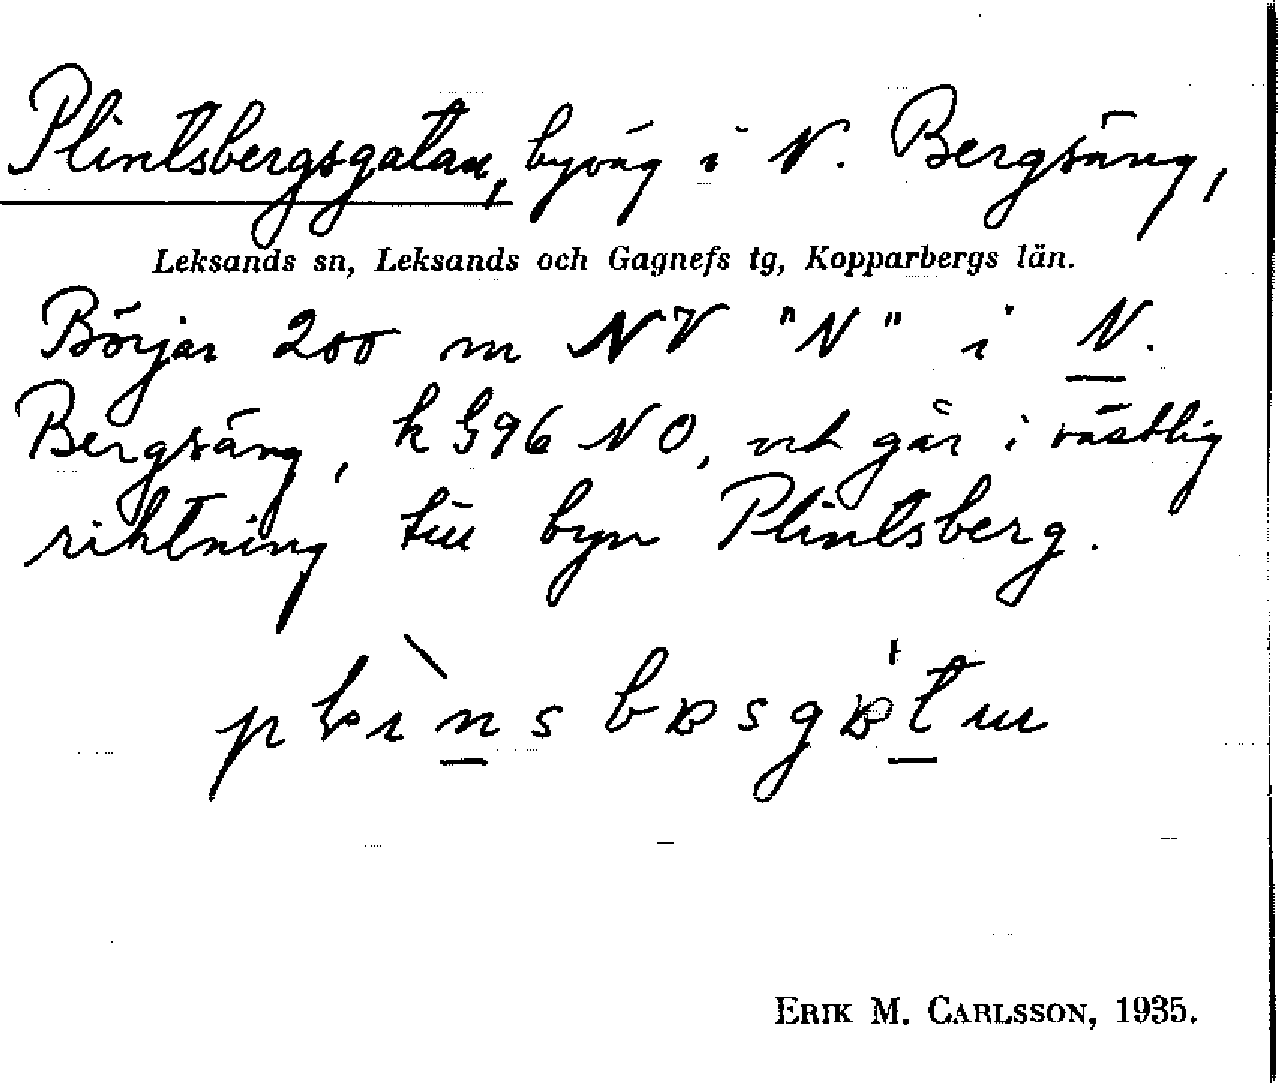 Plintsbergsgatan, byväg i N. Bergsäng,
Leksands sn, Leksands och Gagnefs tg, Kopparbergs län.
Börjar 200 m NV "N" i N.
Bergsäng, k G96 NO, och går i västlig
riktning till byn Plintsberg.
ERIK M. CARLSSON, 1935.